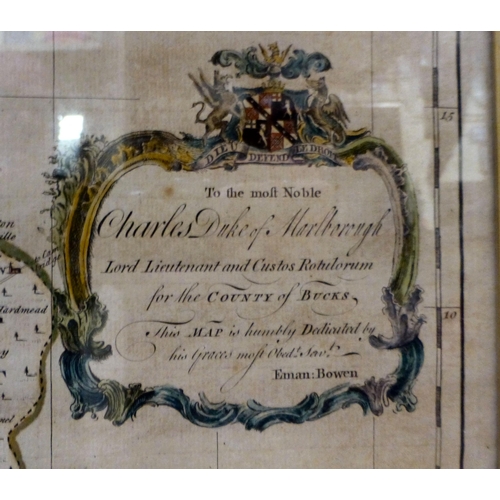 DIEU DEFEND LE DROIT
To the moſt Noble
Charles Duke of Marlborough
Lord Lieutenant and Custos Rotulorum
for the COUNTY of BUCKS,
This MAP is humbly Dedicated by
his Graces moſt Obedt. Servt.
Eman: Bowen
15
10
Hardmead